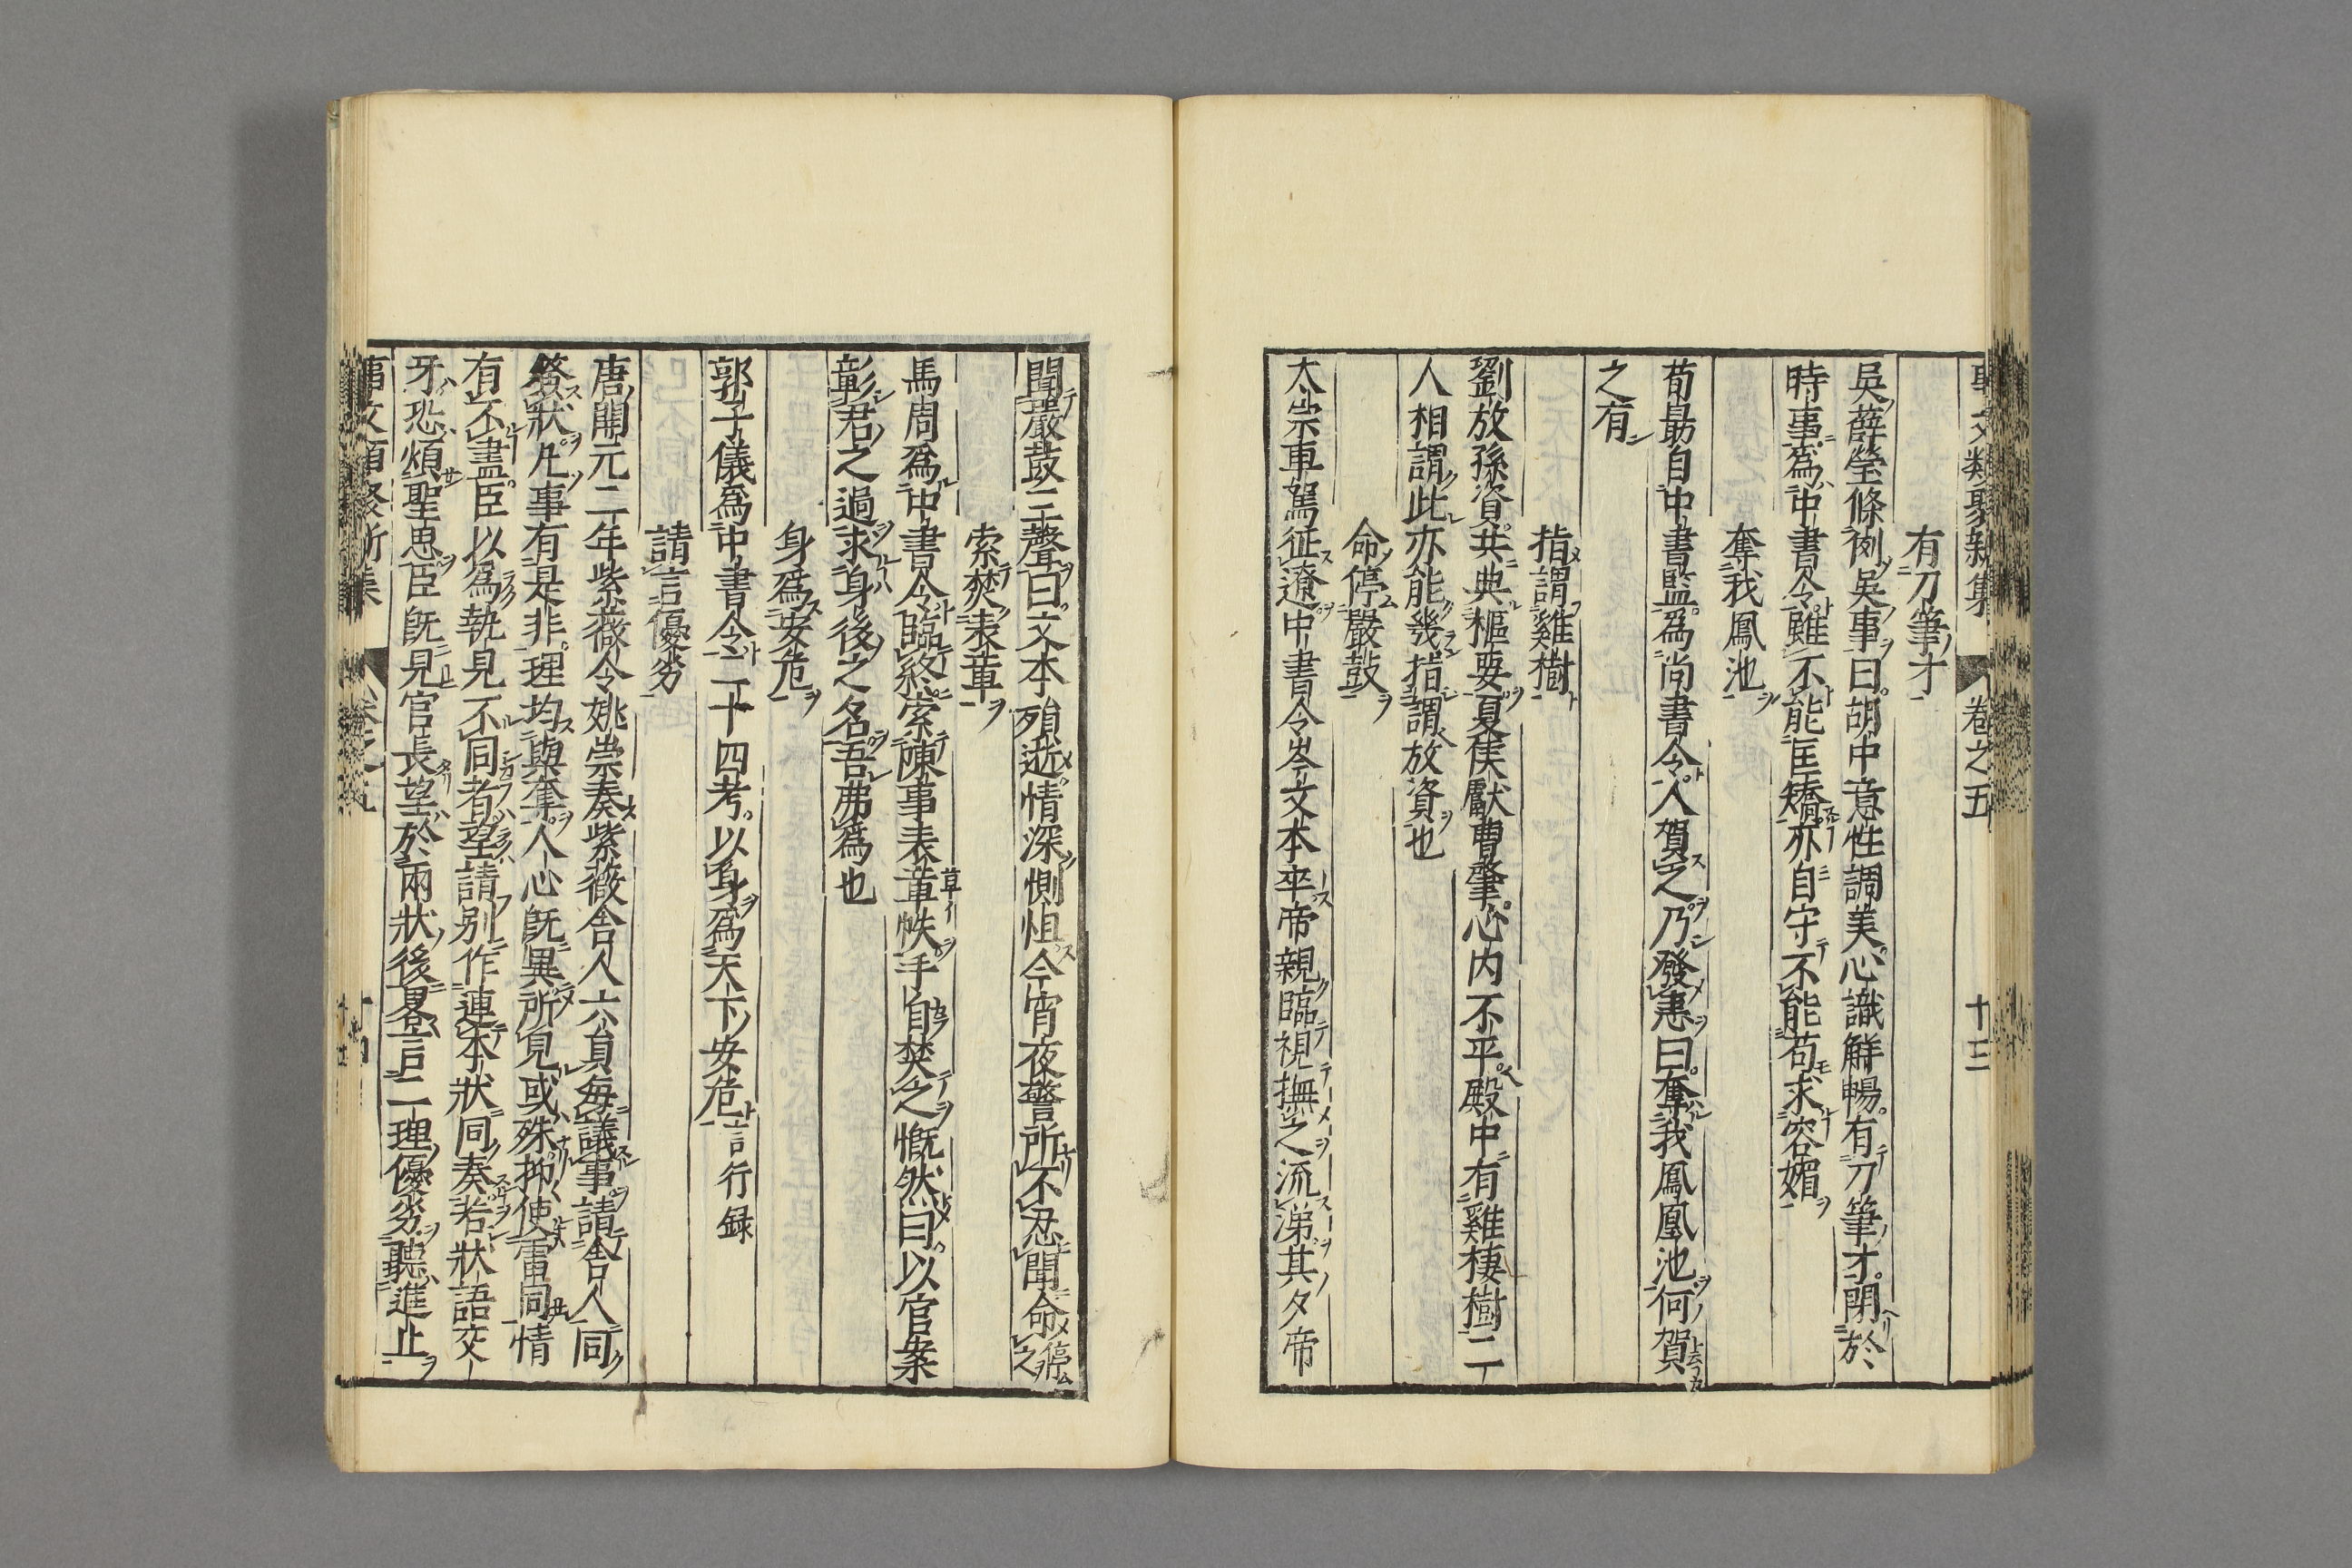 事文類聚新集 卷之五 十三
有刀筆才
吳薛瑩條例吳事曰胡中意性調美心識觧暢有刀筆才閉於
時事爲中書令雖不能匡矯亦自守不能苟求容媚
奪我鳳池
荀勗自中書監爲尚書令人賀之乃發恚曰奪我鳳凰池何賀
之有
指謂雞樹
劉放孫資共典樞要夏侯獻曹肇心内不平殿中有雞棲樹二
人相謂此亦能幾指謂放資也
命停嚴鼓
太崇車駕征遼中書令岑文本卒帝親臨視撫之流涕其夕帝
聞嚴鼓三聲曰文本殞逝情深惻怛今宵夜警所不忍聞命停之
索焚表章
馬周爲中書令臨終索陳事表章帙手自焚之慨然曰以官桊
彰君之過求身後之名吾弗爲也
身爲安危
郭子儀爲中書令二十四考以身爲天下安危言行録
請言優劣
唐開元二年紫薇令姚崇奏紫薇舎人六員毎議事請舎人同
簽狀凡事有是非理均與奪人心旣異所見或殊抑使雷同情
有不盡臣以爲執見不同者望請别作連本狀同奏若狀語交
牙恐煩聖思臣旣見官長望於兩狀後畧言二理優劣聽進止
事文類聚新集 卷之五